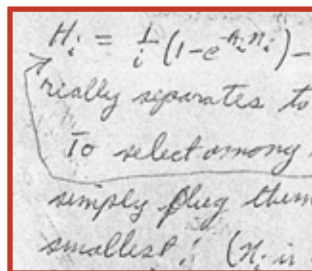 Hᵢ = 1/i (1-e^-hᵢnᵢ) -
really separates to
To select among
simply plug them
smallest! (nᵢ is